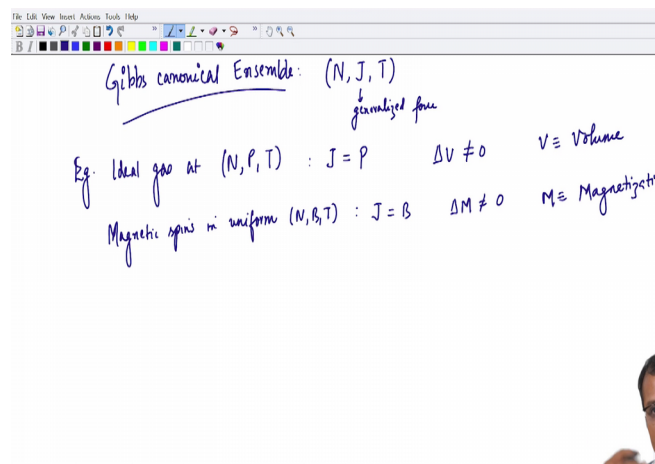 File Edit View Insert Actions Tools Help
Gibbs canonical Ensemble: (N, J, T)
generalized force
Eg. Ideal gas at (N, P, T) : J = P ΔV ≠ 0 V ≡ Volume
Magnetic spins in uniform (N, B, T) : J = B ΔM ≠ 0 M ≡ Magnetizati